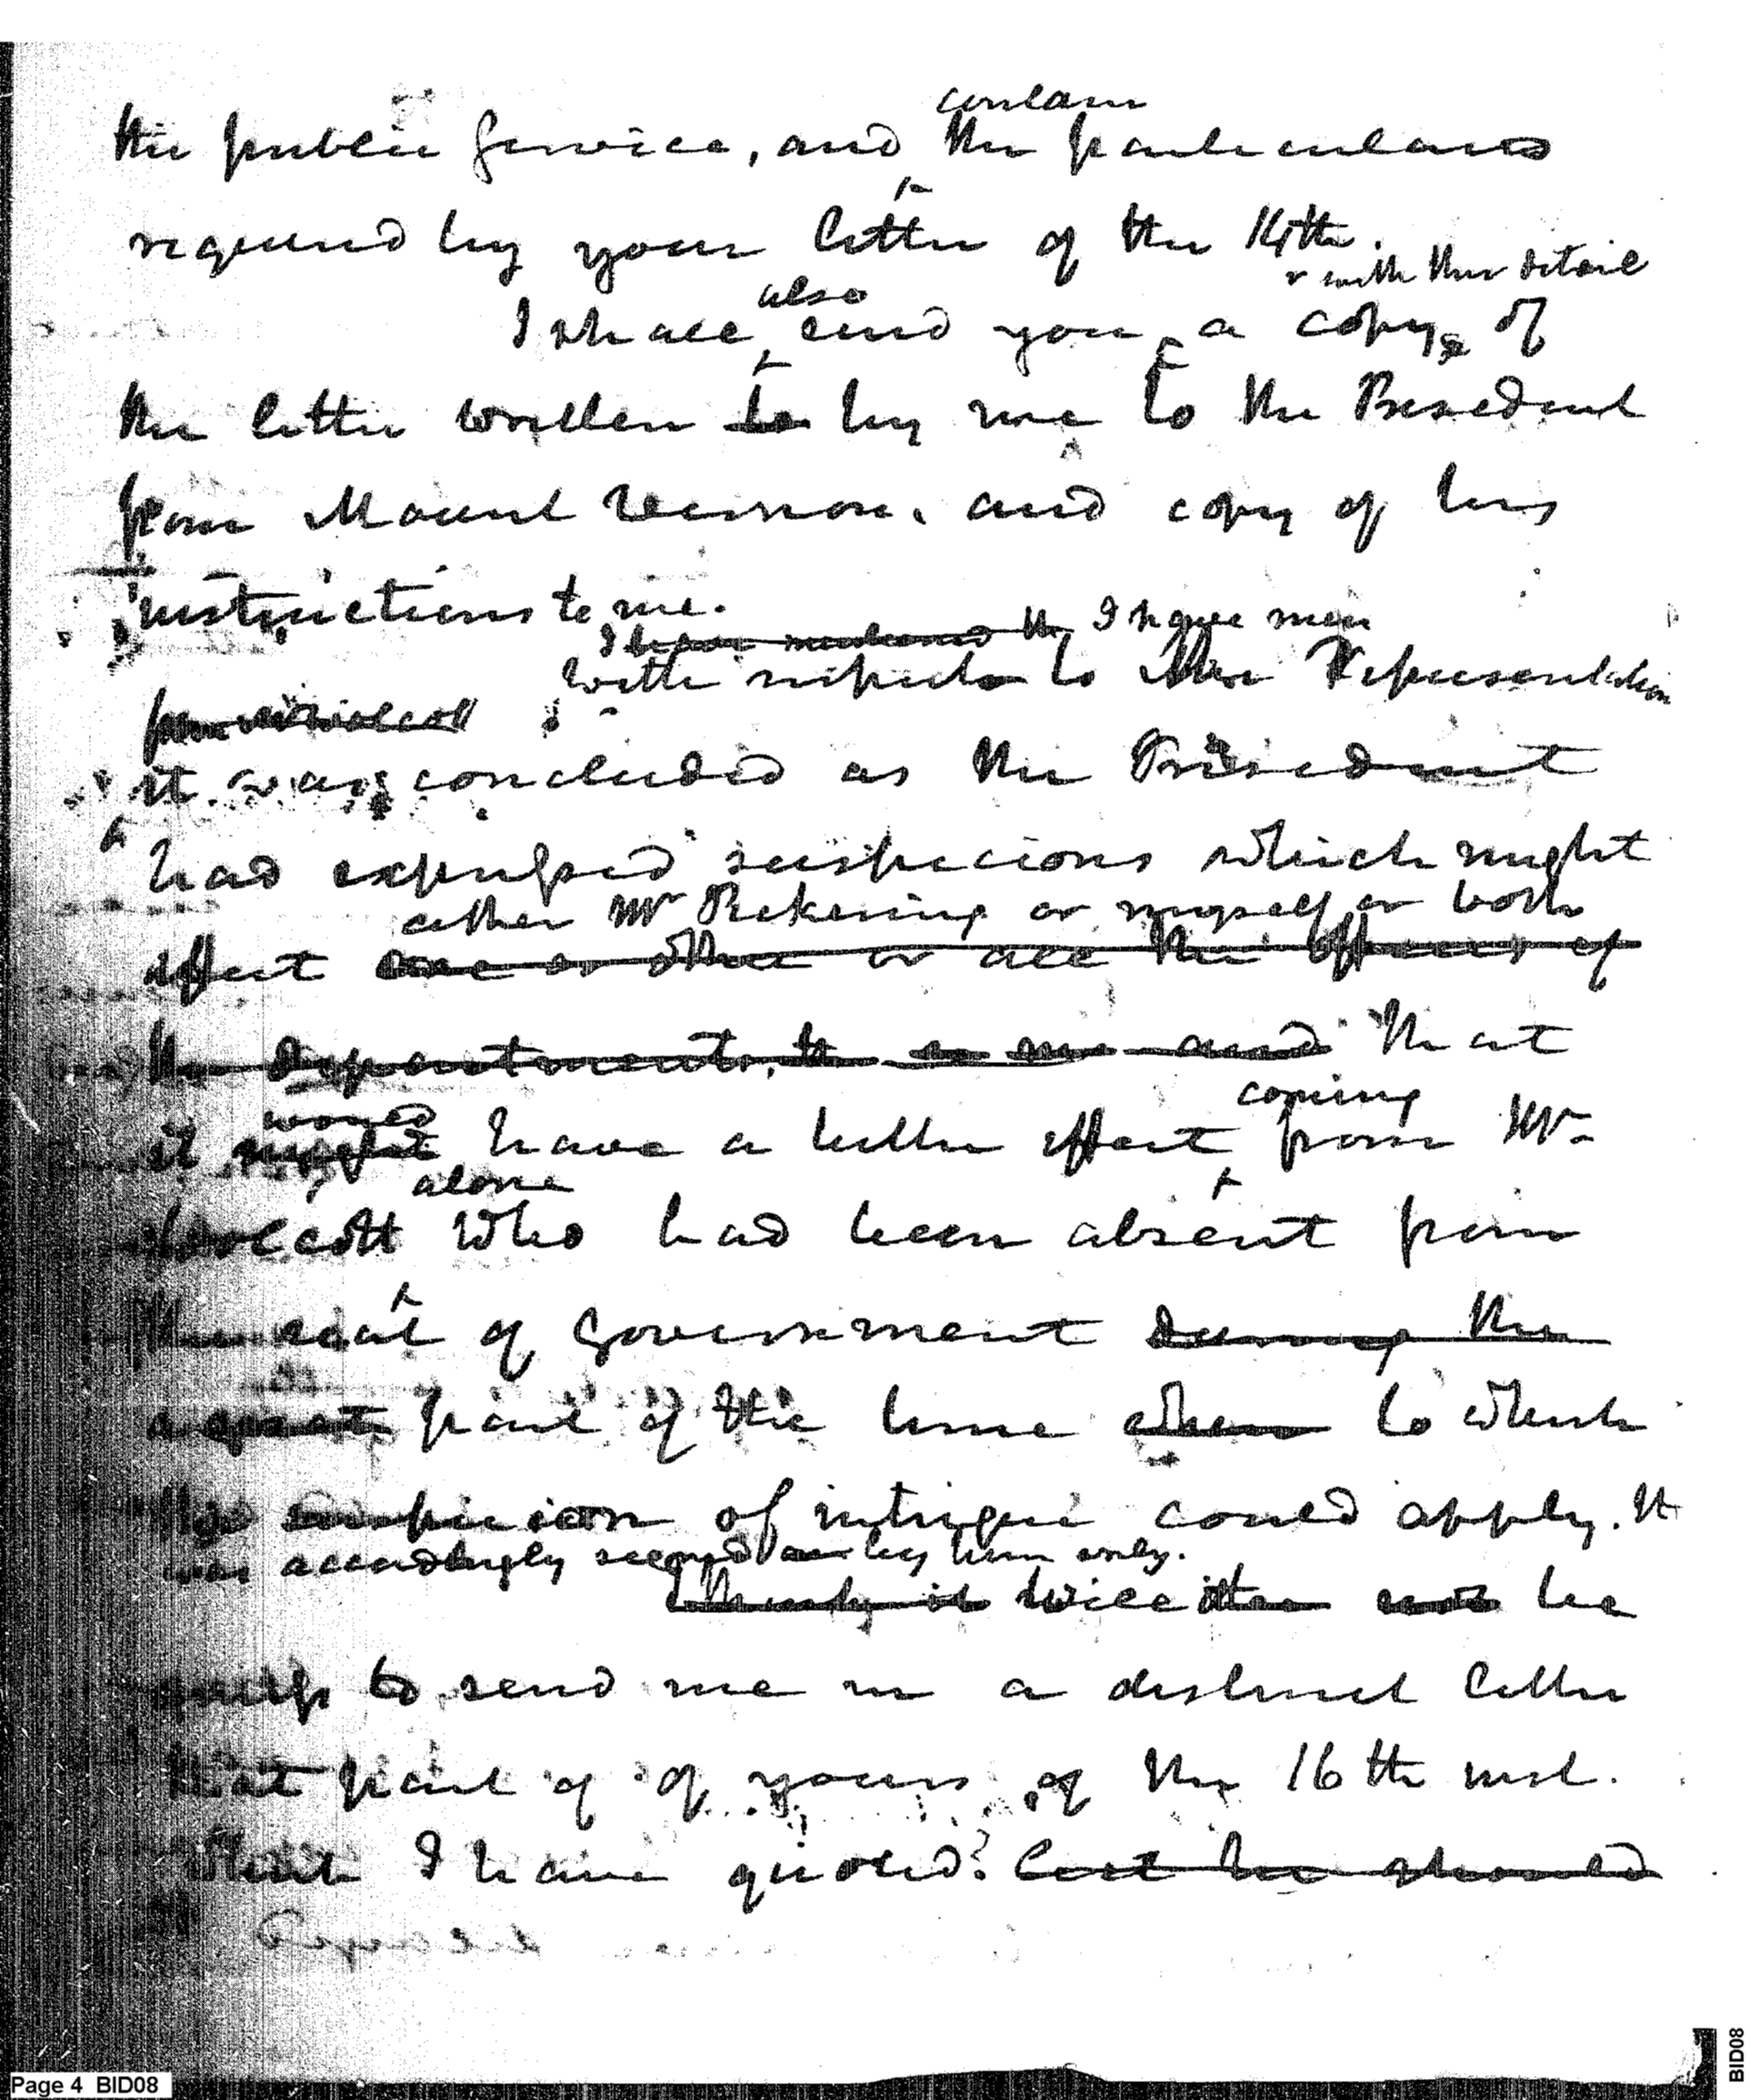 contain
the public Service, and the particulars
required by your letter of the 14th.
& with this detail
also
I shall send you a copy of
the letter written to by me to the President
from Mount Vernon, and copy of his
instructions to me.
I have mentioned the
with respect to the Representation
from Wolcott
it was concluded as the President
had expressed suspicions which might
either Mr Pickering or myself or both
affect one or other or all the officers of
the departments, to and that
coming
would
it might have a better effect from Mr
alone
Wolcott who had been absent from
the seat of Government during the
a great part of the time when to which
the suspicion of intrigue could apply. It
was accordingly signed by him only.
will be
to send me in a distinct letter
that part of of yours of the 16th inst.
which I have quoted? lest he should
Page 4 BID08
BID08